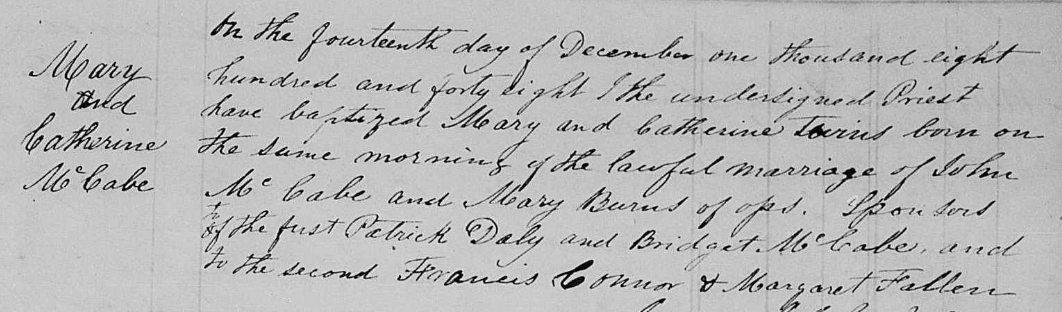 Mary
and
Catherine
McCabe
On the fourteenth day of December one thousand eight
hundred and forty eight I the undersigned Priest
have baptized Mary and Catherine twins born on
the same morning of the lawful marriage of John
Mc Cabe and Mary Burns of ops. Sponsors
to
of the first Patrick Daly and Bridget McCabe, and
to the second Francis Connor & Margaret Fallen